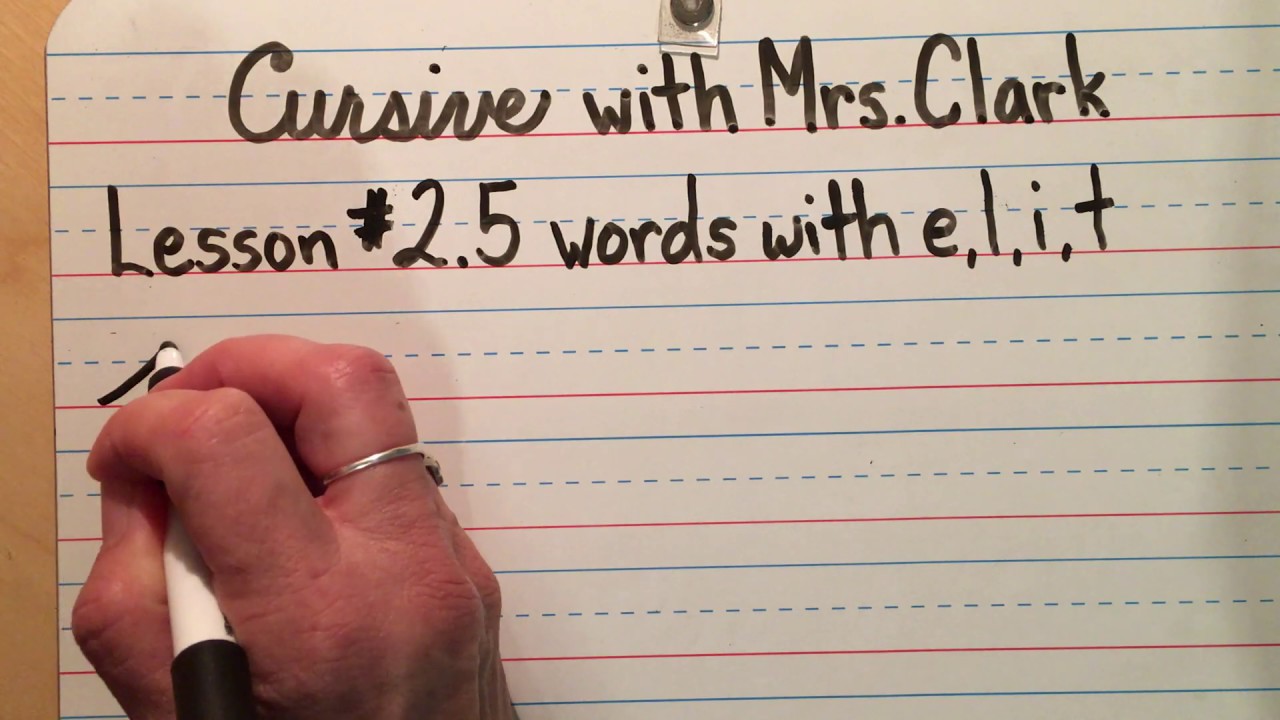 Cursive with Mrs. Clark
Lesson #2.5 words with e, l, i, t